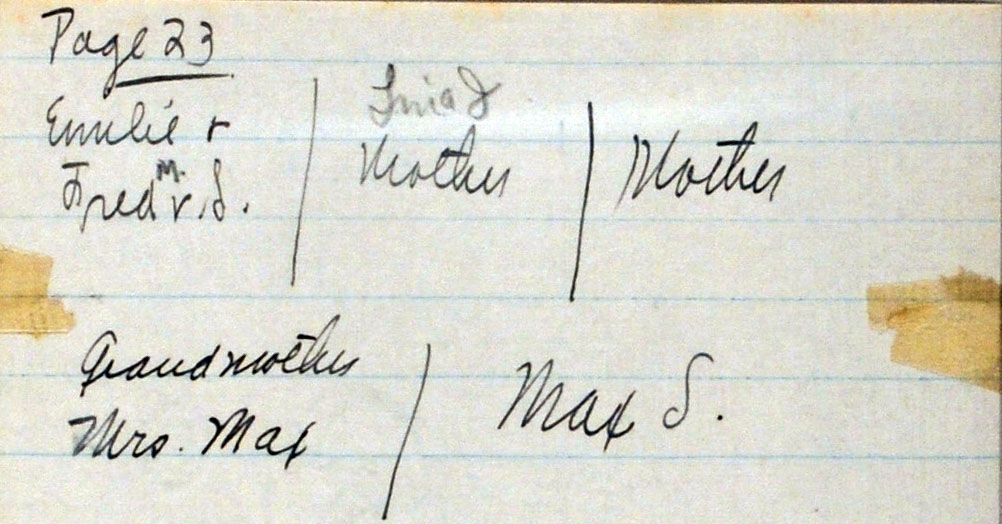 Page 23
Emilie +
Fred M. v. S.
Mother
Mother
Grandmother
Mrs. Max
Max S.